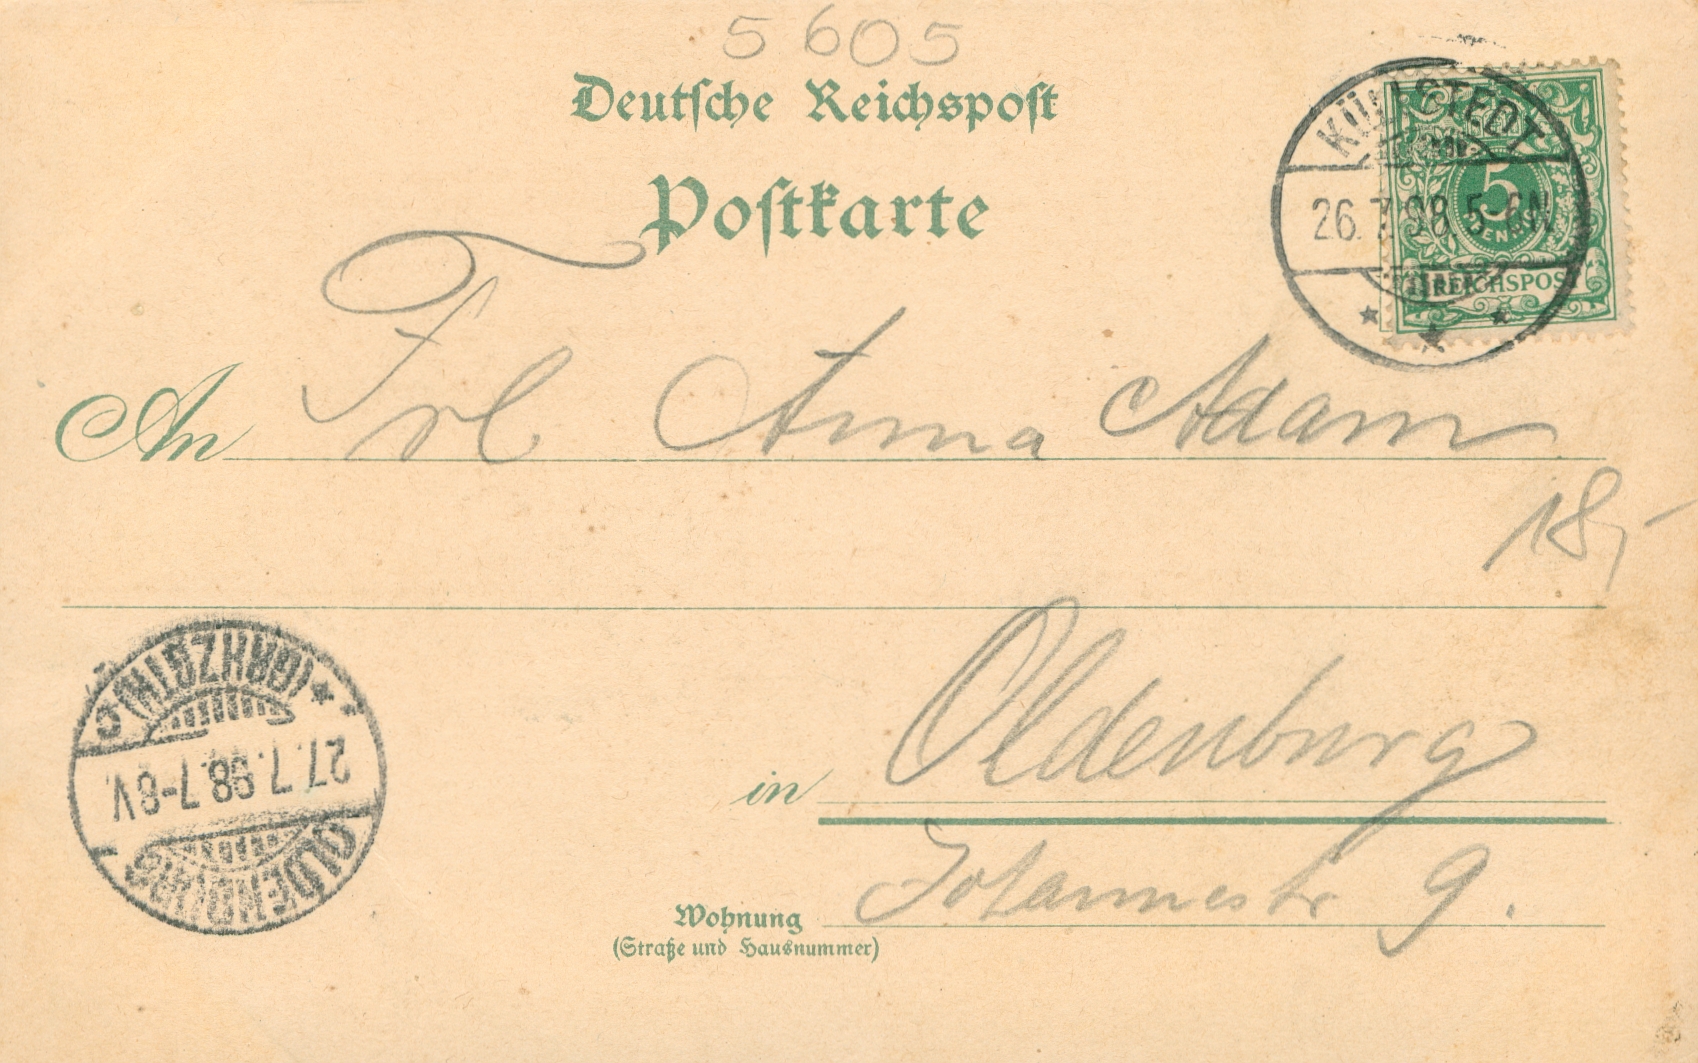 5605
Deutsche Reichspost
Postkarte
KÜLLSTEDT
26.7.98.5-6N
5
PFENNIG
REICHSPOST
An Frl Anna Adam
18,-
(GRHZGTH.)
27.7.98.7-8V.
OLDENBURG
in Oldenburg
Wohnung Johannestr 9.
(Straße und Hausnummer)